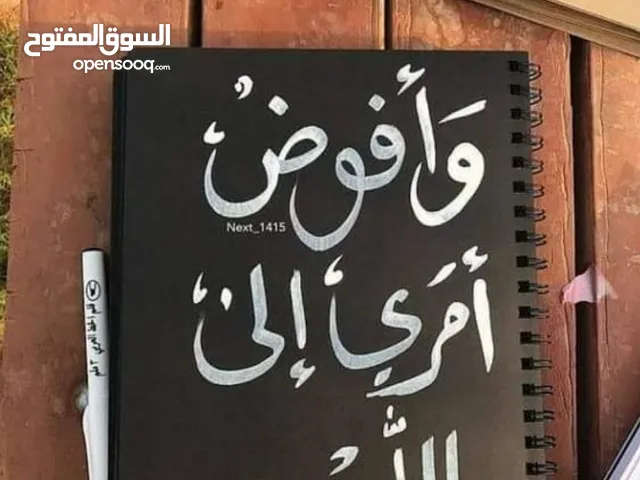 السوق المفتوح
opensooq.com
وَأفوضُ
Next_1415
أمَري إلىٰ
اللّٰه